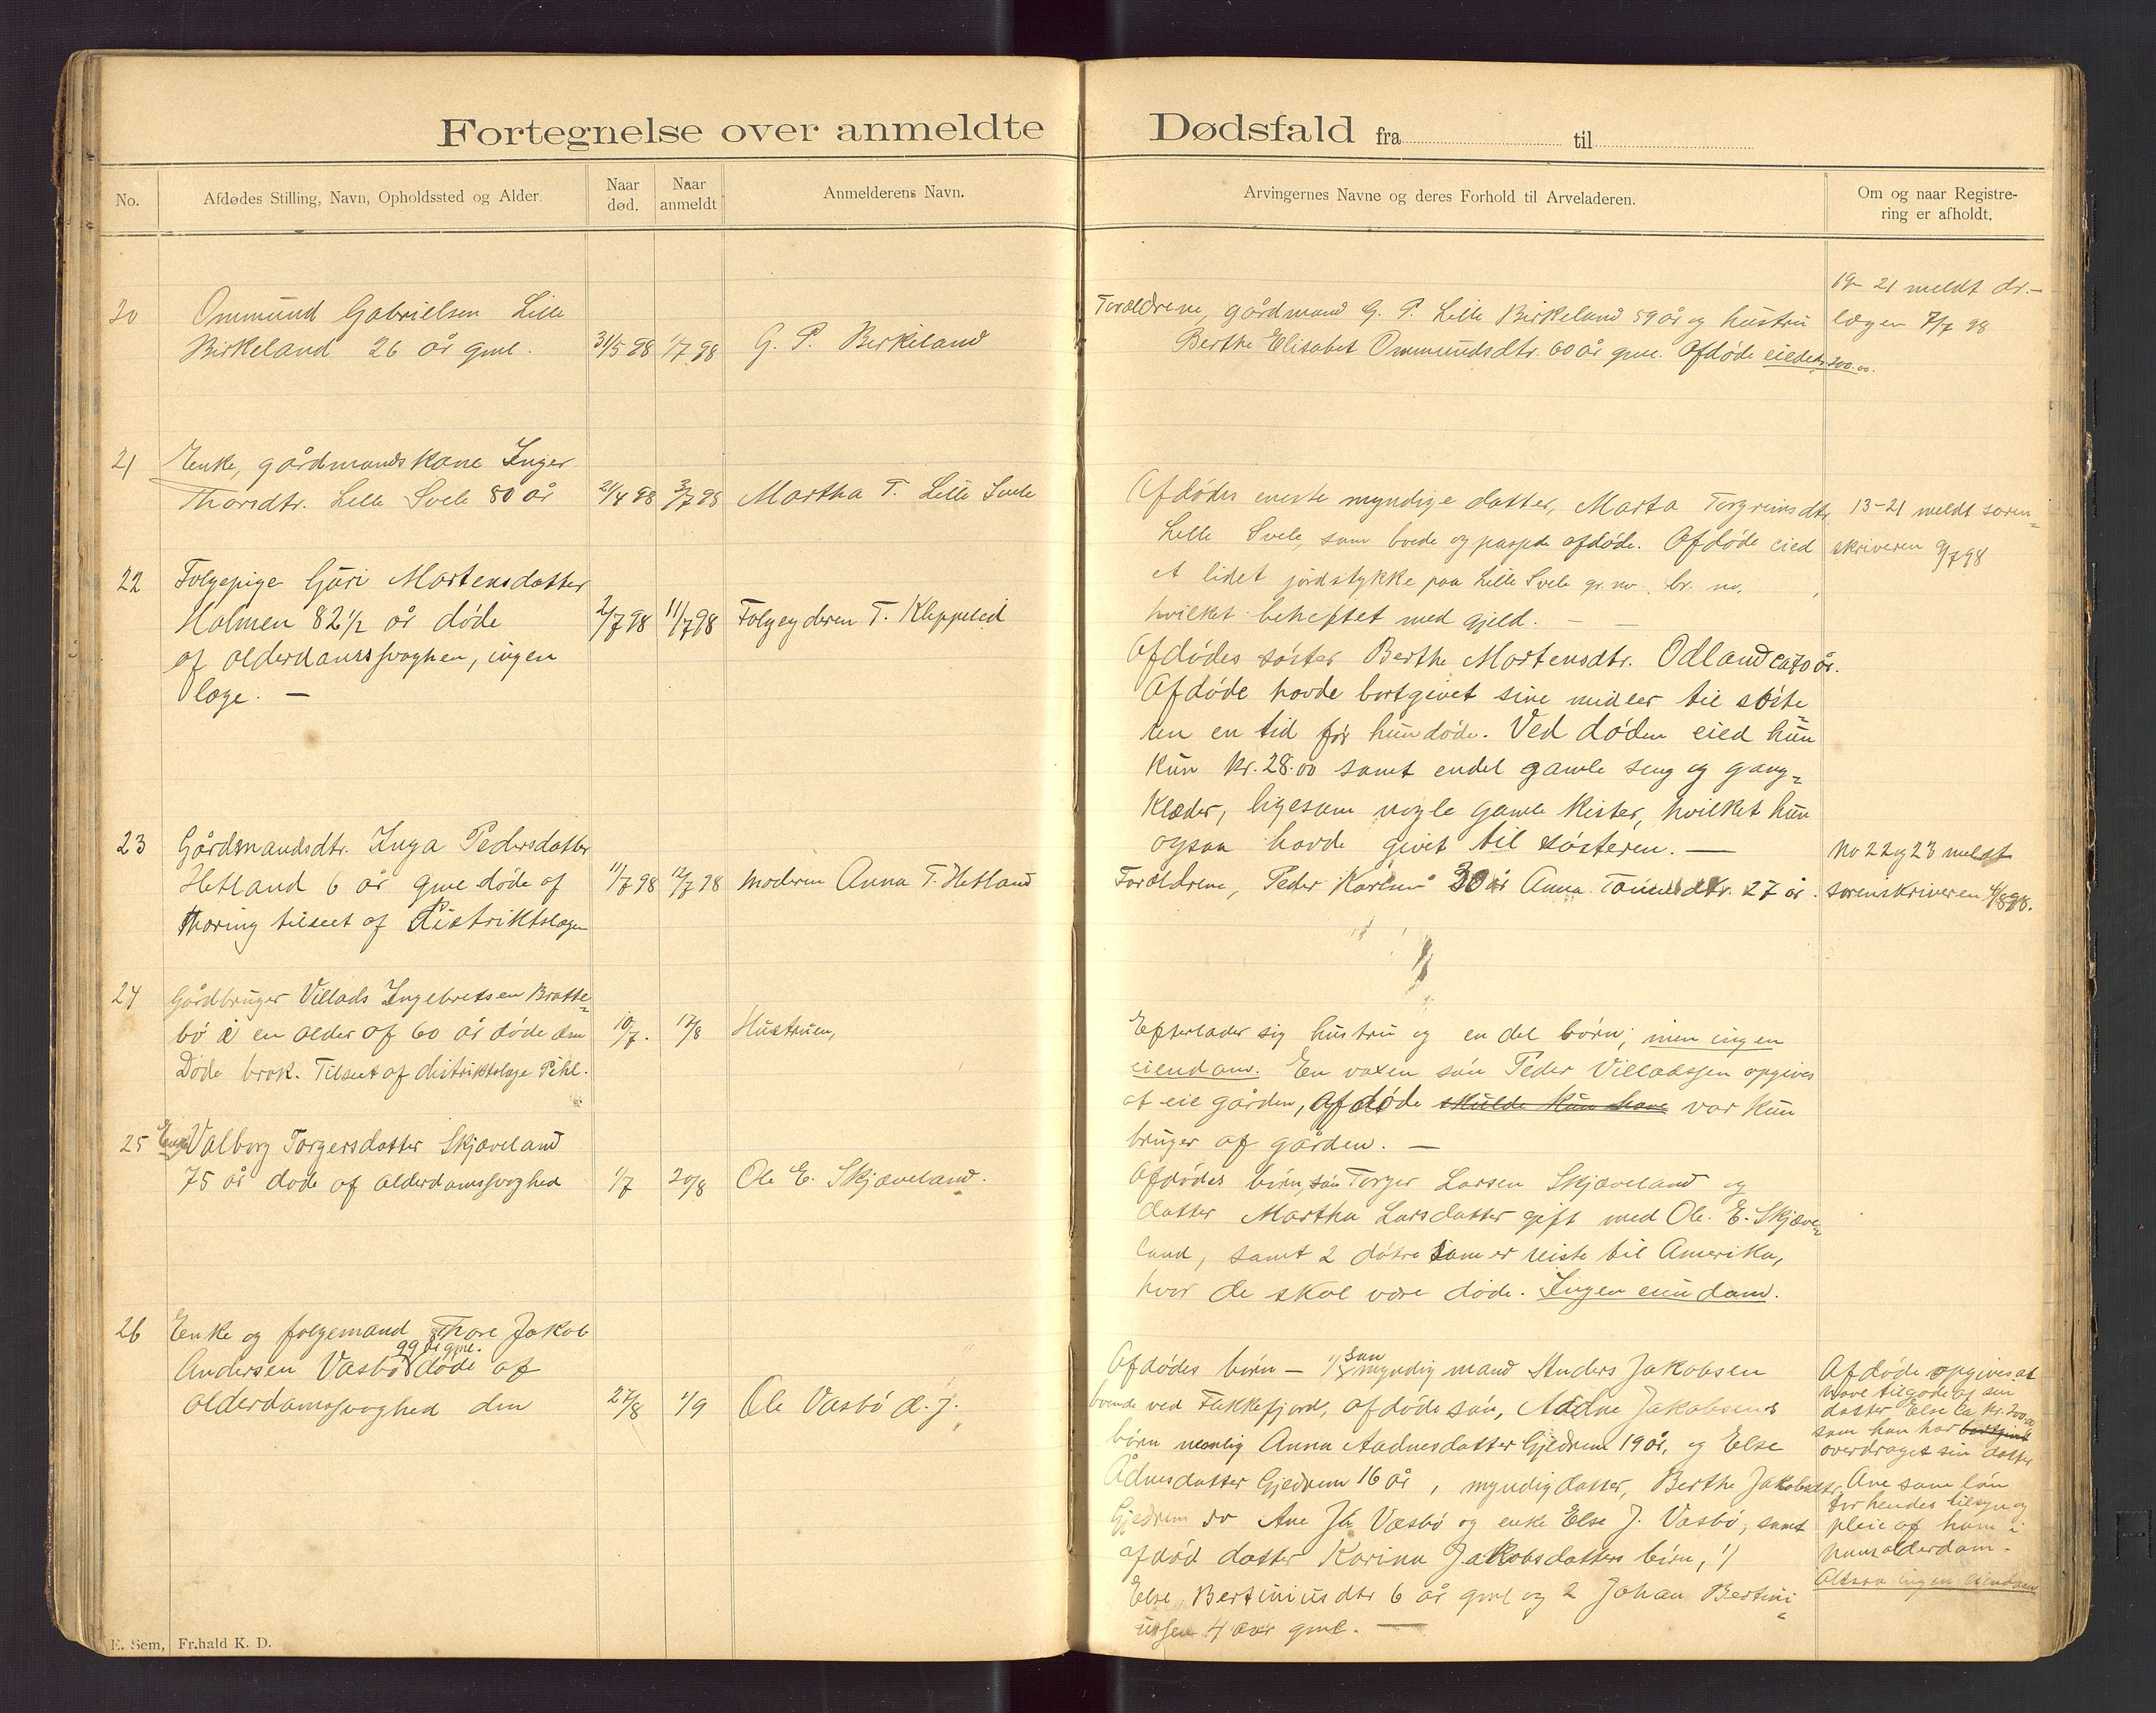 Fortegnelse over anmeldte Dødsfald fra til
No.
Afdødes Stilling, Navn, Opholdssted og Alder.
Naar død.
Naar anmeldt
Anmelderens Navn.
Arvingernes Navne og deres Forhold til Arveladeren.
Om og naar Registrering er afholdt.
20
Ommund Gabrielsen Lille
Birkeland 26 år gml.
31/5 98
1/7 98
G. P. Birkeland
Forældrene, gårdmand G. P. Lille Birkeland 59 år og hustru
Berthe Elisabet Ommundsdtr. 60 år gml. Afdøde eiede kr. 200.00.
19-21 meldt dr.-
lægen 7/7 98
21
Enke, gårdmandskone Inger
Thorsdtr. Lille Svele 80 år
21/4 98
3/7 98
Martha T. Lille Svele
Afdødes eneste myndige datter, Marta Torgrimsdtr
Lille Svele, som boede og passede afdøde. Afdøde eied
et lidet jordstykke paa Lille Svele gr. no. br. no.
hvilket beheftet med gjeld. — —
13-21 meldt soren=
skriveren 9/7 98
22
Følgepige Guri Mortensdatter
Holmen 82 1/2 år døde
af alderdomssvaghen, ingen
læge. —
2/7 98
11/7 98
Følgeyderen T. Kleppelid
Afdødes søster Berthe Mortensdtr. Odland ca 70 år.
Afdøde havde bortgivet sine midler til søste
ren en tid før hun døde. Ved døden eied hun
kun kr. 28.00 samt endel gamle seng og gang=
klæder, ligesom nogle gamle kister, hvilket hun
ogsaa havde givet til søsteren. —
23
Gårdmandsdtr. Inga Pedersdatter
Hetland 6 år gml døde af
tæring tilseet af Distriktslægen
11/7 98
12/7 98
Moderen Anna T. Hetland
Forældrene, Peder Karlsen 30 år Anna Tønnesdtr. 27 år.
No 22 og 23 meldt
sorenskriveren 4/8 98.
24
Gårdbruger Villads Ingebretsen Bratte=
bø i en alder af 60 år døde den
Døde brok. Tilseet af distriktslæge Pihl.
10/7.
17/8
Hustruen,
Efterlader sig hustru og en del børn; men ingen
eiendom. En voxen søn Peder Villadssen opgives
at eie gården, Afdøde skulde kun have var kun
bruger af gården. —
25
Enke Valborg Torgersdatter Skjæveland
75 år døde af alderdomssvaghed
1/7
20/8
Ole E. Skjæveland.
Afdødes børn, søn Torger Larsen Skjæveland og
datter Martha Larsdatter gift med Ole. E. Skjæve=
land, samt 2 døtre som er reiste til Amerika,
hvor de skal være døde. Ingen eiendom.
26
Enke og følgemand Thore Jakob
99 år gml.
Andersen Vasbø døde af
alderdomssvaghed den
27/8
1/9
Ole Vasbø d. j.
Afdødes børn — 1) søn myndig mand Anders Jakobsen
boende ved Flekkefjord, afdøde søn, Aadne Jakobsens
børn nemlig Anna Aadnesdatter Gjedrem 19 år, og Else
Ådnesdatter Gjedrem 16 år, myndig datter, Berthe Jakobsdtr.
Gjedrem do Ane Jb Vasbø og enke Else J. Vasbø, samt
afdød datter Karina Jakobsdatters børn, 1)
Else Bertiniusdtr 6 år gml og 2 Johan Bertini=
ussen 4 aar gml. —
Afdøde opgives at
have tilgode af sin
datter Else Ca. kr. 200.00
som han har bortgivet
overdraget sin datter
Ane som løn
for hendes tilsyn og
pleie af ham i
hans alderdom.
Altsaa ingen eiendom
E. Sem, Fr.hald K. D.